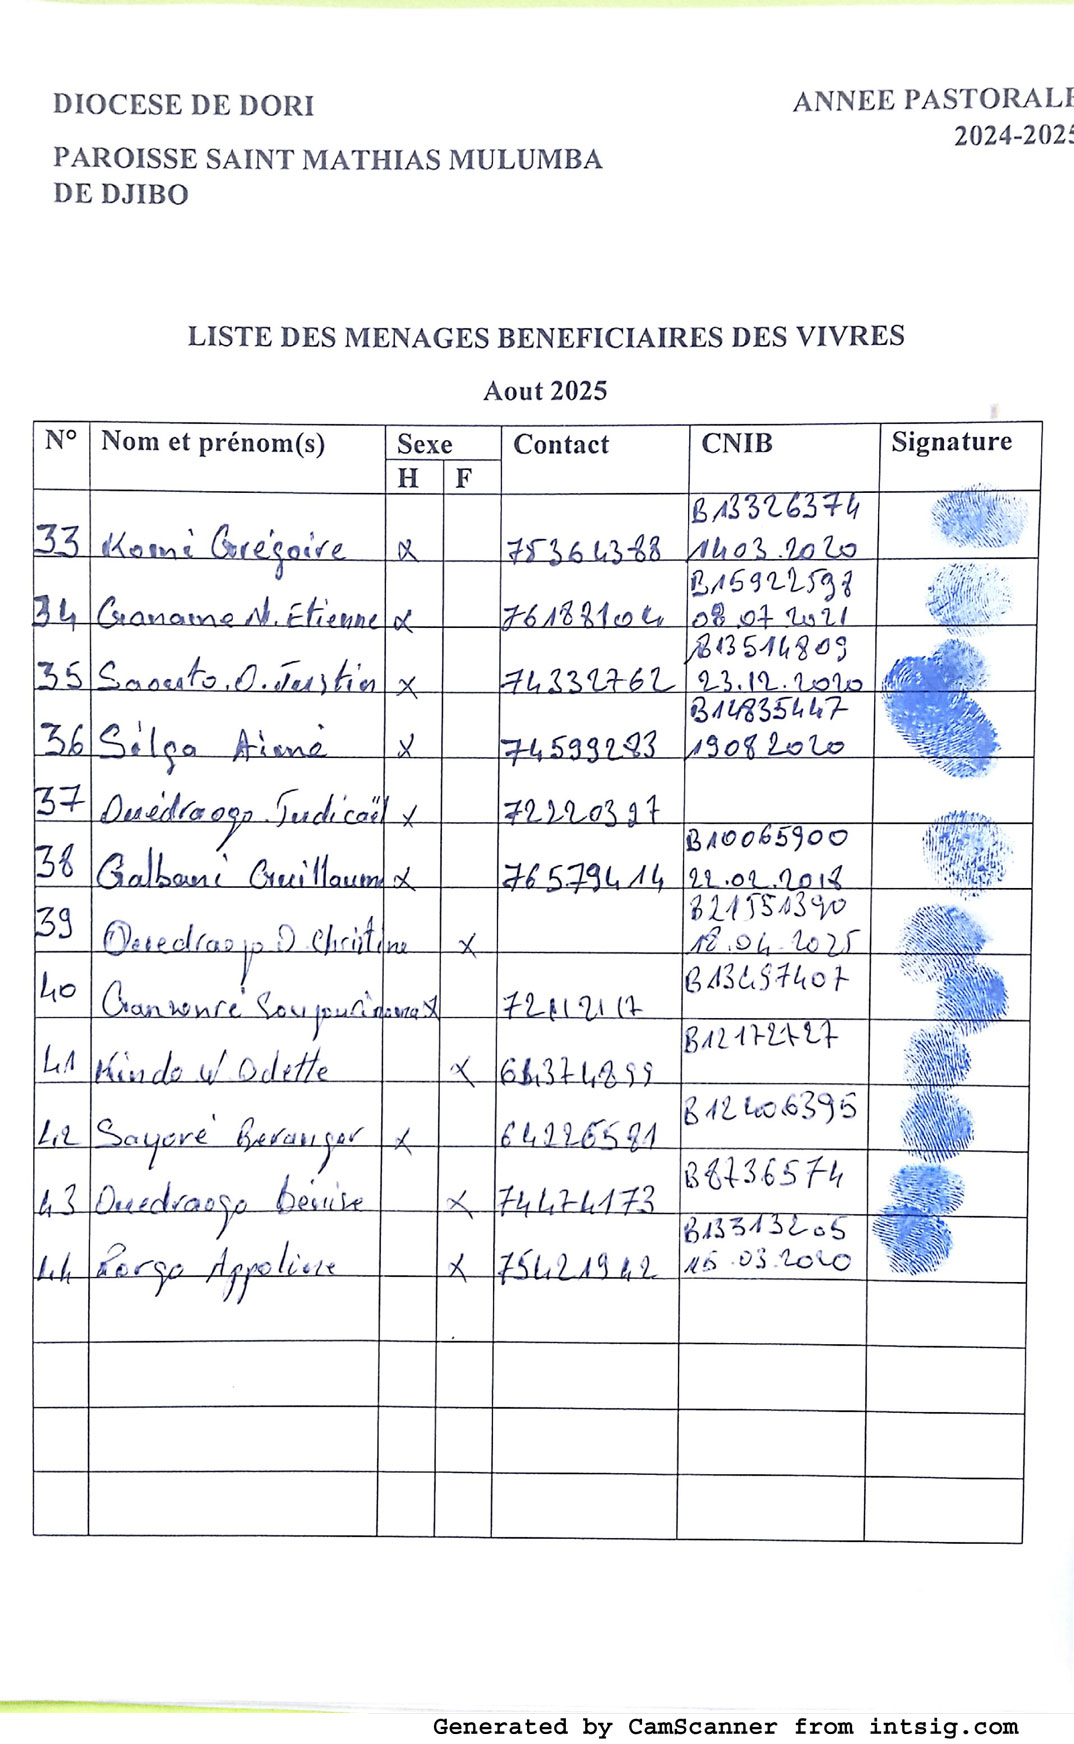 DIOCESE DE DORI
ANNEE PASTORALE
2024-2025
PAROISSE SAINT MATHIAS MULUMBA
DE DJIBO
LISTE DES MENAGES BENEFICIAIRES DES VIVRES
Aout 2025
N° Nom et prénom(s) Sexe Contact CNIB Signature
H F
B13326374
33 Komi Grégoire x 75364388 1403.2020
B15922598
34 Ganame N. Etienne x 76188104 08.07.2021
B13514809
35 Sawato.O.Justin x 74332762 23.12.2020
B14835447
36 Sélga Aimé x 74599283 19082020
37 Ouédraogo.Judicaël x 72220397
B10065900
38 Galbani Guillaum x 76579414 22.02.2018
B21551390
39 Ouedraogo D Christine x 18.04.2025
B13497407
40 Ganzonré x 72112117
B12172727
41 Kindo W Odette x 64374899
B12406395
42 Sayoré Beranger x 64226581
B8736574
43 Ouedraogo Denise x 74474173
B13313205
44 Porgo Appoline x 75421942 16.03.2020
Generated by CamScanner from intsig.com